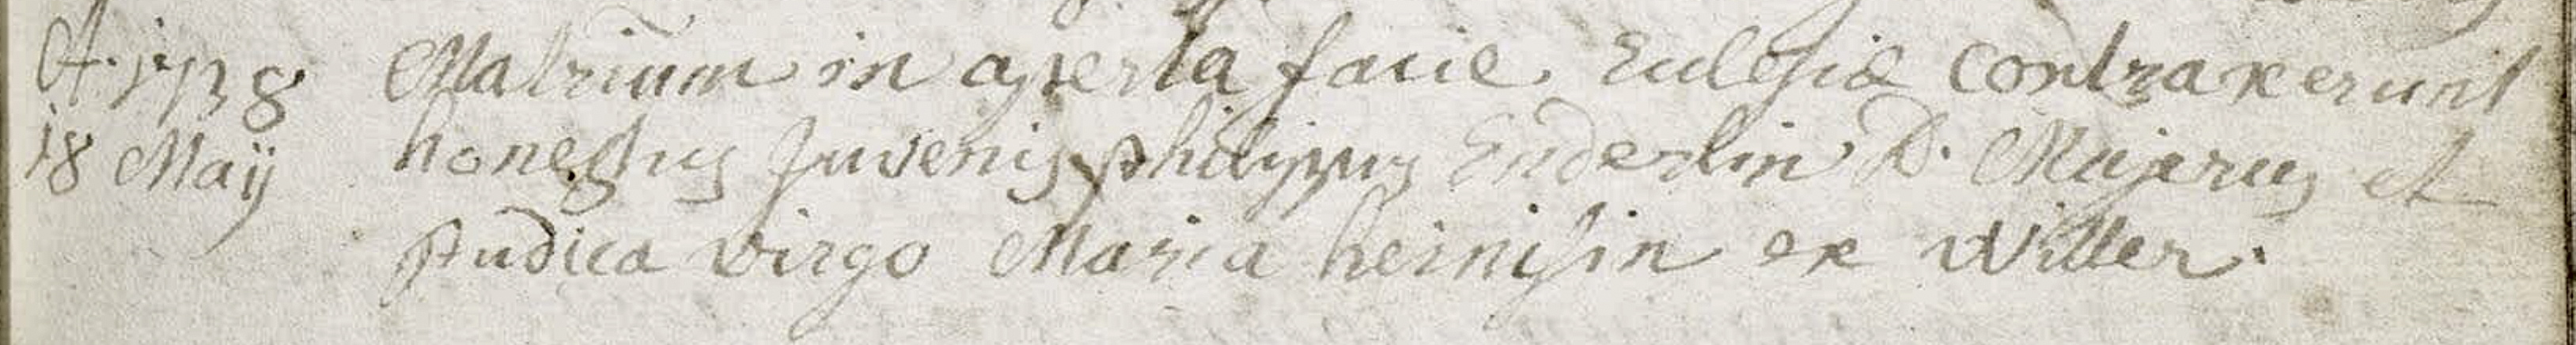 A. 1738 Matrium in aperta facie Eclesiæ contraxerunt
18 Maij honestus Juvenis philippus Enderlin D. Majerus et
pudica virgo Maria heinisin ex Willer.